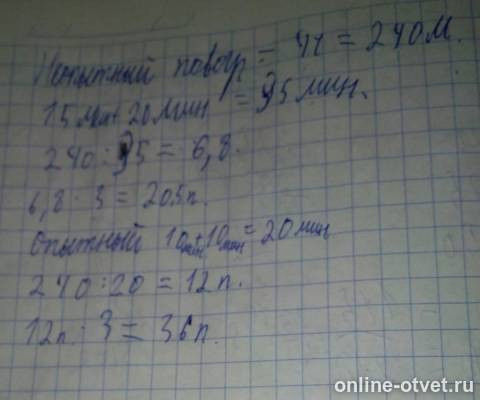 Неопытный повар = 4ч = 240м.
15мин+20мин = 35мин.
240:35 = 6,8.
6,8 · 3 = 20,5п.
Опытный 10мин+10мин = 20мин
240:20 = 12п.
12п. · 3 = 36п.
online-otvet.ru